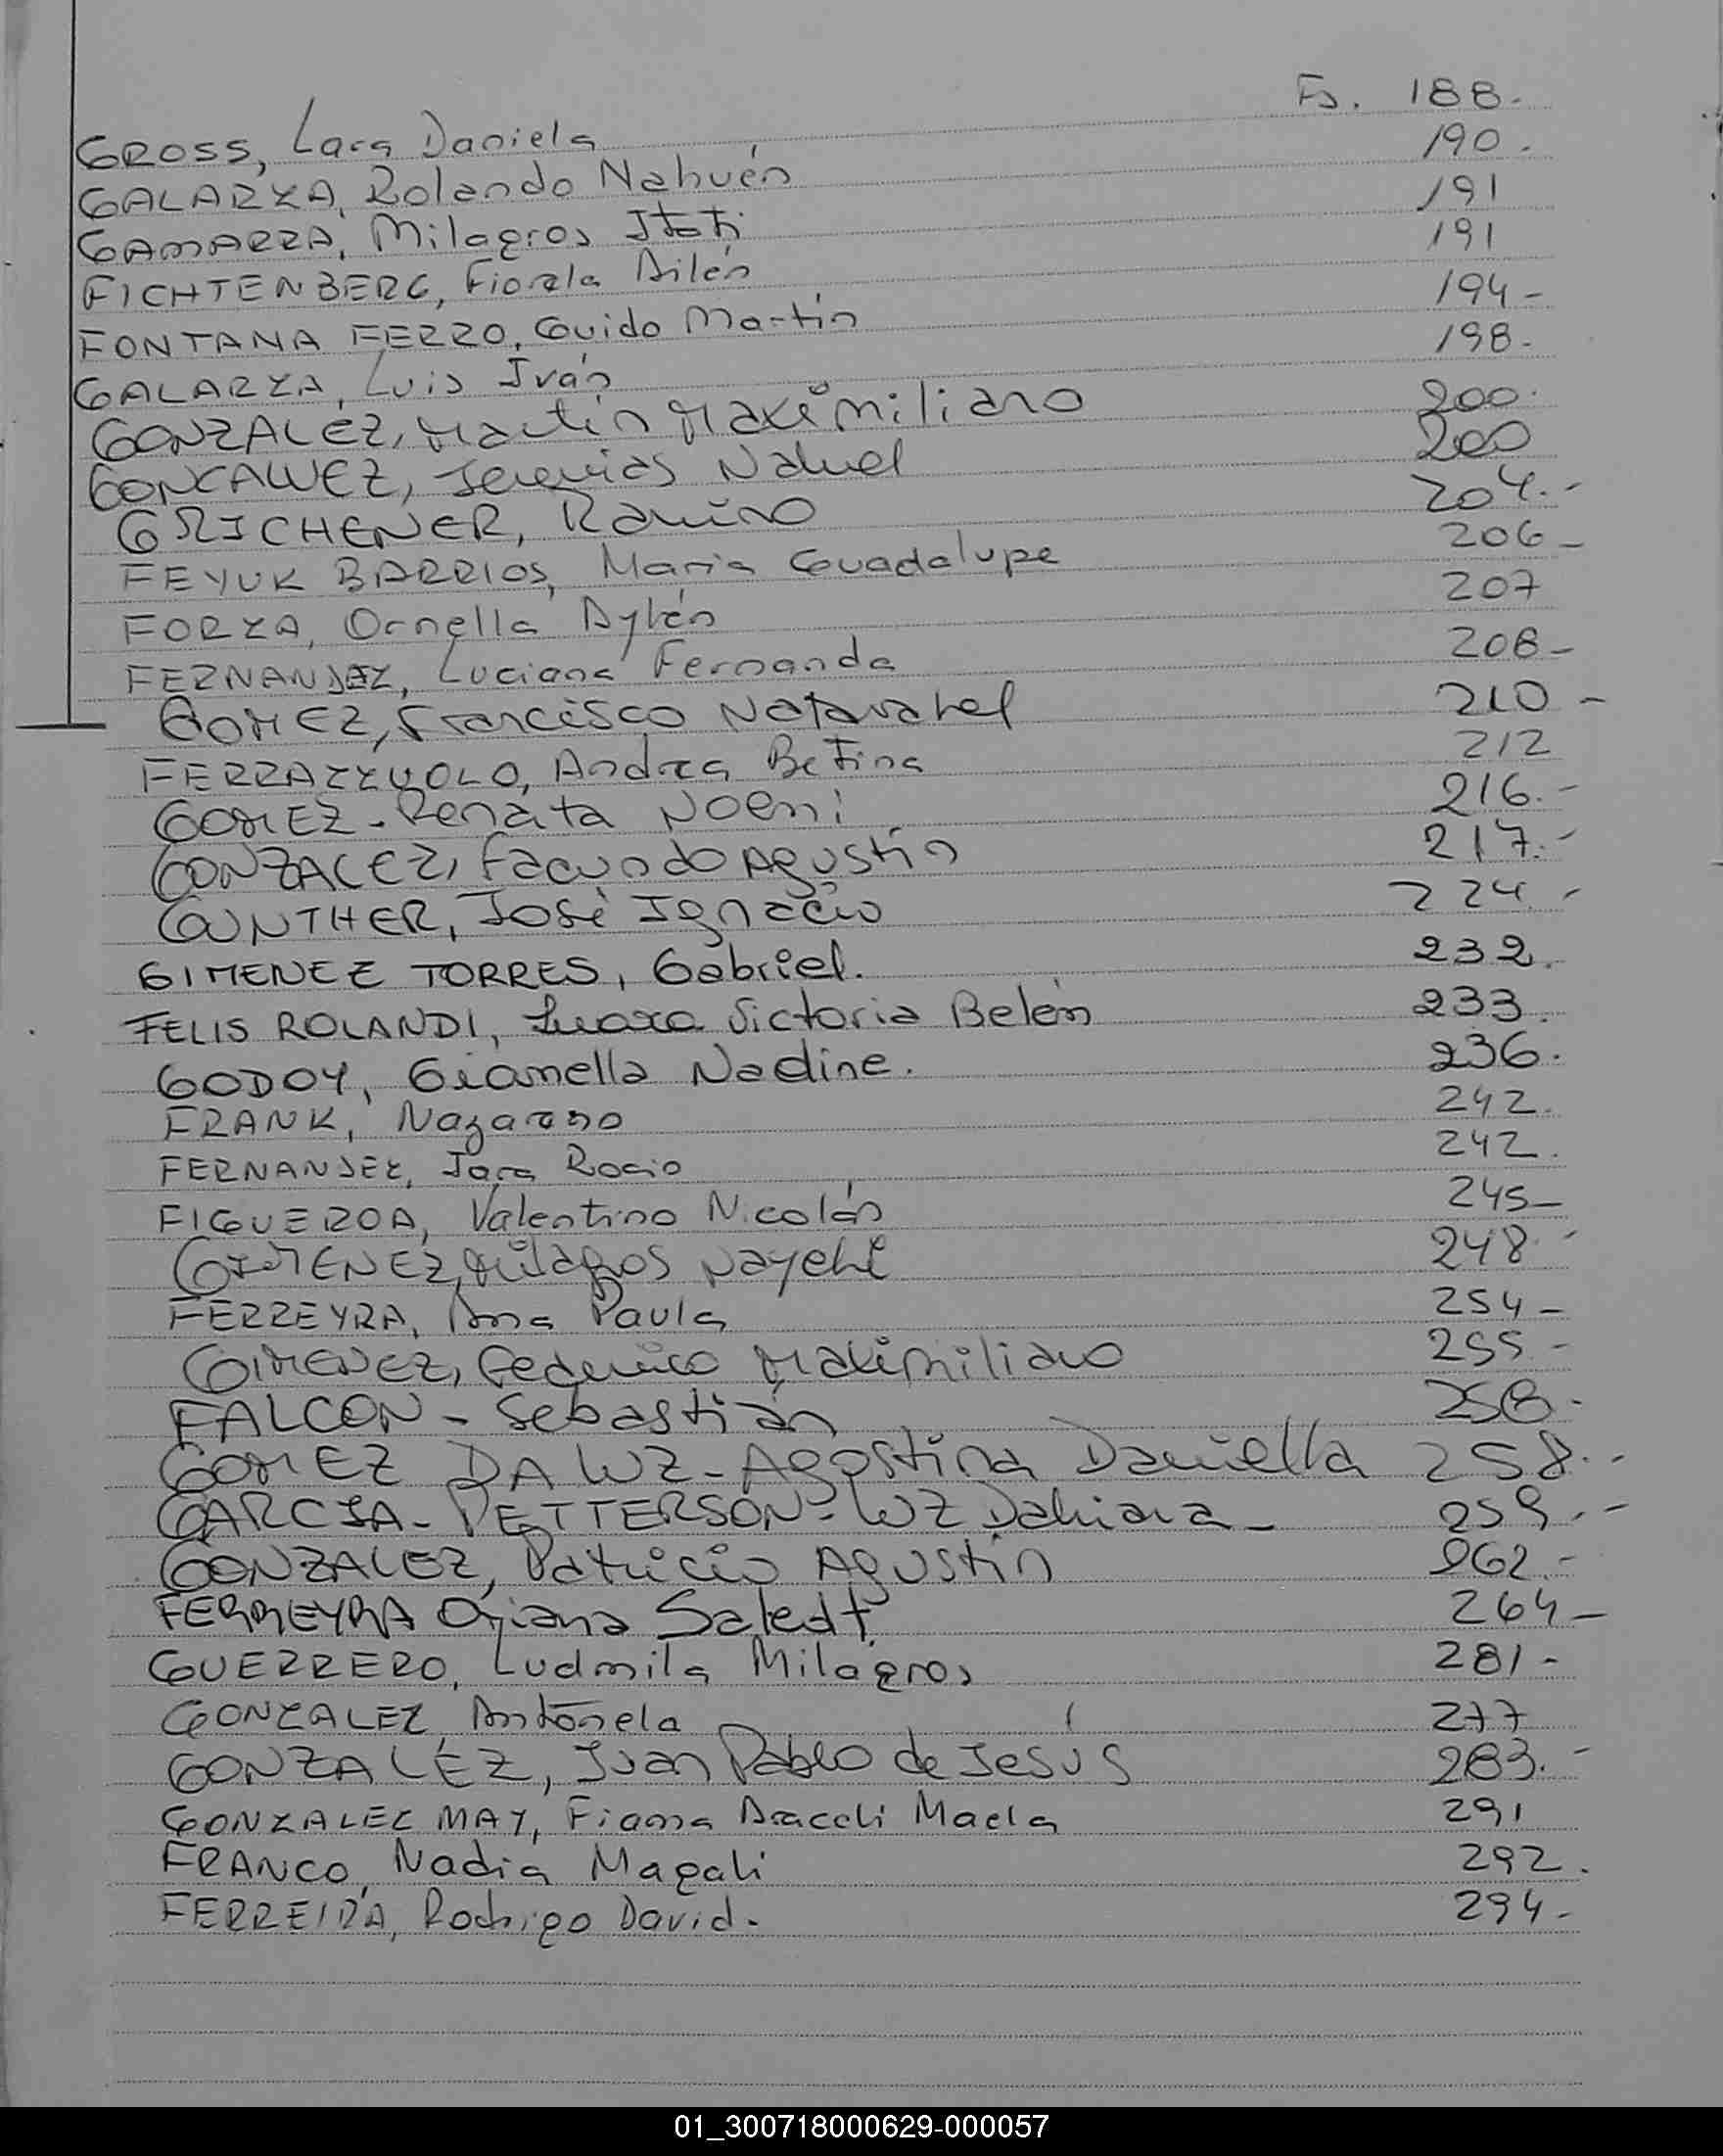 GROSS, Lara Daniela Fs. 188.-
GALARZA, Rolando Nahuén 190.
GAMARRA, Milagros Itatí 191
FICHTENBERG, Fiorela Ailén 191
FONTANA FERRO, Guido Martín 194-
GALARZA, Luis Iván 198.
GONZALEZ, Martín Maximiliano 200.
GONCALVEZ, Jeremias Nahuel 200
GRICHENER, Ramiro 204.-
FEYUK BARRIOS, María Guadalupe 206-
FORZA, Ornella Aylén 207
FERNANDEZ, Luciana Fernanda 208-
GOMEZ, Francisco 210-
FERRAZZUOLO, Andrea Betina 212
GOMEZ-Renata Noemi 216.-
GONZALEZ, Facundo Agustín 217.-
GUNTHER, José Ignacio 224.-
GIMENEZ TORRES, Gabriel. 232.
FELIS ROLANDI, Victoria Belén 233.
GODOY, Gianella Nadine. 236.
FRANK, Nazareno 242.
FERNANDEZ, Jara Rocio 242.
FIGUEROA, Valentino Nicolás 245-
GIMENEZ, Milagros Nayeli 248-
FERREYRA, Ana Paula 254-
GIMENEZ, Federico Maximiliano 255-
FALCON-Sebastián 258.-
GOMEZ DA LUZ-Agostina Daniella 258.-
GARCIA-PETTERSON-LUZ Dahiana- 259.-
GONZALEZ, Patricio Agustín 262.-
FERREYRA Oriana 264-
GUERRERO, Ludmila Milagros 281-
GONZALEZ, Antonela 277
GONZALEZ, Juan Pablo de Jesús 283.-
GONZALEZ MAY, Fiama Araceli Maela 291
FRANCO, Nadia Magali 292.
FERREIRA, Rodrigo David. 294-
01_300718000629-000057